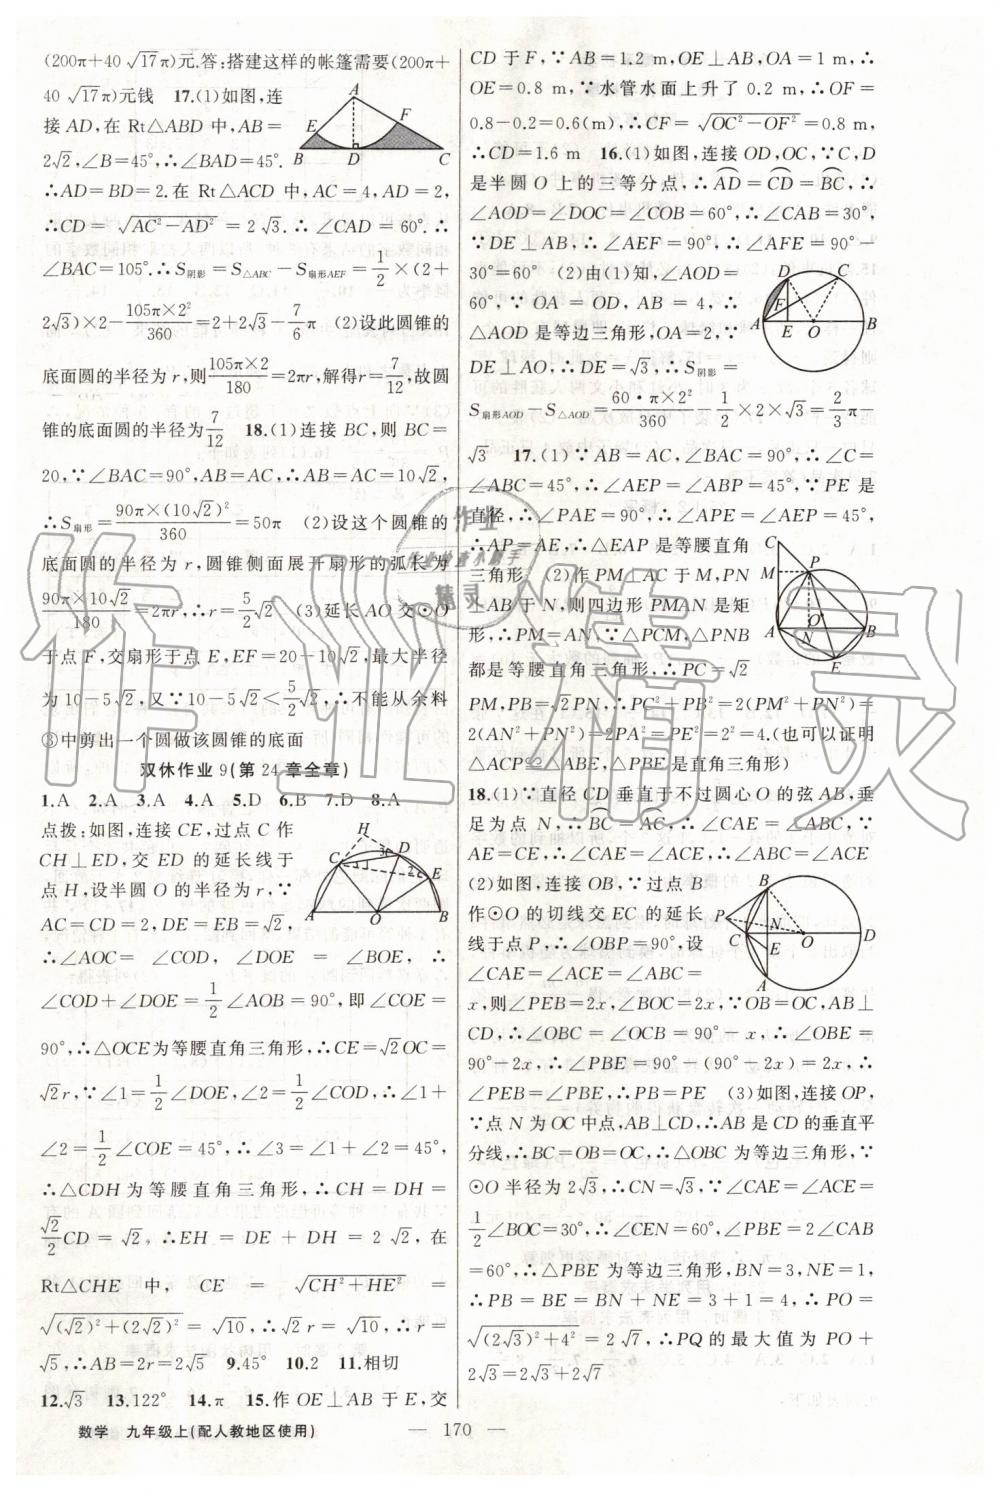 (200π+40√17π)元.答:搭建这样的帐篷需要(200π+
40√17π)元钱 17.(1)如图,连
接AD,在Rt△ABD中,AB=
2√2,∠B=45°,∴∠BAD=45°.
∴AD=BD=2.在Rt△ACD中,AC=4,AD=2,
∴CD=√(AC²-AD²)=2√3.∴∠CAD=60°.∴
∠BAC=105°.∴S阴影=S△ABC-S扇形AEF=1/2×(2+
2√3)×2-105π×2²/360=2+2√3-7/6π (2)设此圆锥的
底面圆的半径为r,则105π×2/180=2πr,解得r=7/12,故圆
锥的底面圆的半径为7/12 18.(1)连接BC,则BC=
20,∵∠BAC=90°,AB=AC,∴AB=AC=10√2,
∴S扇形=90π×(10√2)²/360=50π (2)设这个圆锥的
底面圆的半径为r,圆锥侧面展开扇形的弧长为
90π×10√2/180=2πr,∴r=5/2√2 (3)延长AO交⊙O
于点F,交扇形于点E,EF=20-10√2,最大半径
为10-5√2,又∵10-5√2<5/2√2,∴不能从余料
③中剪出一个圆做该圆锥的底面
双休作业9(第24章全章)
1.A 2.A 3.A 4.A 5.D 6.B 7.D 8.A
点拨:如图,连接CE,过点C作
CH⊥ED,交ED的延长线于
点H,设半圆O的半径为r,∵
AC=CD=2,DE=EB=√2,
∴∠AOC=∠COD,∠DOE=∠BOE,∴
∠COD+∠DOE=1/2∠AOB=90°,即∠COE=
90°,∴△OCE为等腰直角三角形,∴CE=√2OC=
√2r,∵∠1=1/2∠DOE,∠2=1/2∠COD,∴∠1+
∠2=1/2∠COE=45°,∴∠3=∠1+∠2=45°,
∴△CDH为等腰直角三角形,∴CH=DH=
√2/2CD=√2,∴EH=DE+DH=2√2,在
Rt△CHE中,CE=√(CH²+HE²)=
√((√2)²+(2√2)²)=√10,∴√2r=√10,∴r=
√5,∴AB=2r=2√5 9.45° 10.2 11.相切
12.√3 13.122° 14.π 15.作OE⊥AB于E,交
CD于F,∵AB=1.2 m,OE⊥AB,OA=1 m,∴
OE=0.8 m,∵水管水面上升了0.2 m,∴OF=
0.8-0.2=0.6(m),∴CF=√(OC²-OF²)=0.8 m,
∴CD=1.6 m 16.(1)如图,连接OD,OC,∵C,D
是半圆O上的三等分点,∴AD=CD=BC,∴
∠AOD=∠DOC=∠COB=60°,∴∠CAB=30°,
∵DE⊥AB,∴∠AEF=90°,∴∠AFE=90°-
30°=60° (2)由(1)知,∠AOD=
60°,∵OA=OD,AB=4,∴
△AOD是等边三角形,OA=2,∵
DE⊥AO,∴DE=√3,∴S阴影=
S扇形AOD-S△AOD=60·π×2²/360-1/2×2×√3=2/3π-
√3 17.(1)∵AB=AC,∠BAC=90°,∴∠C=
∠ABC=45°,∴∠AEP=∠ABP=45°,∵PE是
直径,∴∠PAE=90°,∴∠APE=∠AEP=45°,
∴AP=AE,∴△EAP是等腰直角
三角形 (2)作PM⊥AC于M,PN
⊥AB于N,则四边形PMAN是矩
形,∴PM=AN,∵△PCM,△PNB
都是等腰直角三角形,∴PC=√2
PM,PB=√2PN,∴PC²+PB²=2(PM²+PN²)=
2(AN²+PN²)=2PA²=PE²=2²=4.(也可以证明
△ACP≌△ABE,△PBE是直角三角形)
18.(1)∵直径CD垂直于不过圆心O的弦AB,垂
足为点N,∴BC=AC,∴∠CAE=∠ABC,∵
AE=CE,∴∠CAE=∠ACE,∴∠ACE=∠ABC
(2)如图,连接OB,∵过点B
作⊙O的切线交EC的延长
线于点P,∴∠OBP=90°,设
∠CAE=∠ACE=∠ABC=
x,则∠PEB=2x,∠BOC=2x,∵OB=OC,AB⊥
CD,∴∠OBC=∠OCB=90°-x,∴∠OBE=
90°-2x,∴∠PBE=90°-(90°-2x)=2x,∴
∠PEB=∠PBE,∴PB=PE (3)如图,连接OP,
∵点N为OC中点,AB⊥CD,∴AB是CD的垂直平
分线,∴BC=OB=OC,∴△OBC为等边三角形,∵
⊙O半径为2√3,∴CN=√3,∵∠CAE=∠ACE=
1/2∠BOC=30°,∴∠CEN=60°,∠PBE=2∠CAB
=60°,∴△PBE为等边三角形,BN=3,NE=1,
∴PB=BE=BN+NE=3+1=4,∴PO=
√((2√3)²+4²)=2√7,∴PQ的最大值为PO+
2√3=2√7+2√3
数学 九年级上(配人教地区使用) — 170 —